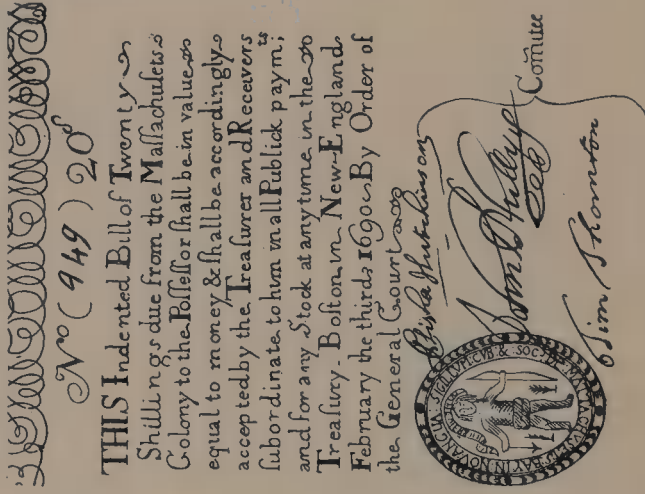 Nº (949) 20ˢ
THIS Indented Bill of Twenty
Shillings due from the Maſſachuſets
Colony to the Poſſeſſor ſhall be in value
equal to money & ſhall be accordingly
accepted by the Treaſurer and Receivers
ſubordinate to him in all Publick paymᵗˢ;
and for any Stock at any time in the
Treaſury. Boſton, in New-England.
February the third; 1690. By Order of
the General Court
Elisha Hutchinson
Tim Thornton
Comitee